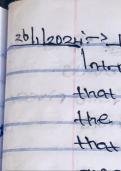 26/1/2024:->
Inter
that
the
that